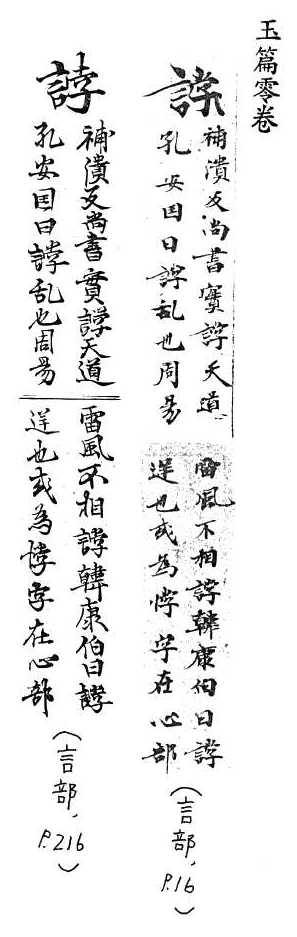 玉篇零卷
誖
補潰反尚書實誖天道
孔安囯曰誖乱也周易
雷風不相誖韓康伯曰誖
逆也或為悖字在心部
(言部,P.16)
誖
補潰反尚書實誖天道
孔安囯曰誖乱也周易
雷風不相誖韓康伯曰誖
逆也或為悖字在心部
(言部,P.216)